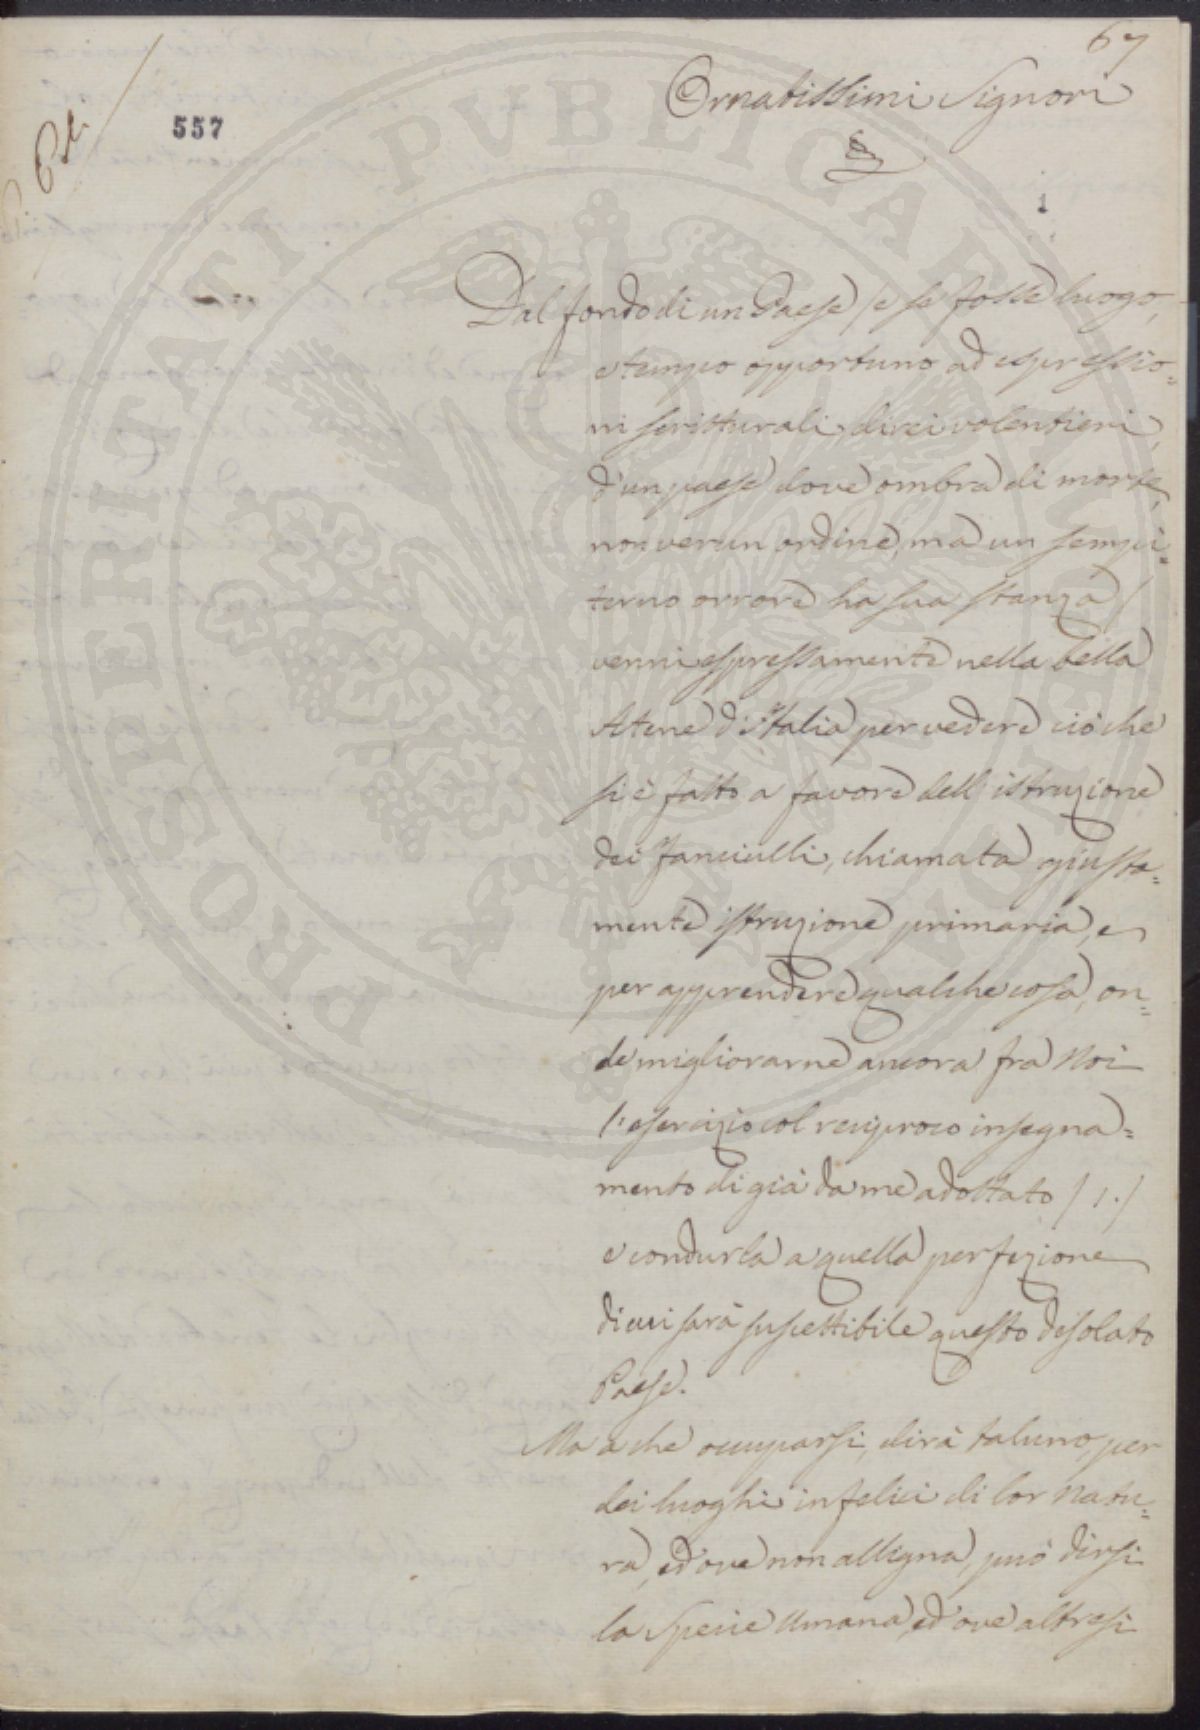 67
557
Ornatissimi Signori
1
Dal fondo di un Paese / e se fosse luogo,
e tempo opportuno ad espressio=
ni scritturali, direi volentieri,
d'un paese dove ombra di morte,
non verun ordine, ma un sempi=
terno orrore ha sua stanza /
venni espressamente nella bella
Atene d'Italia per vedere ciò che
si è fatto a favore dell'istruzione
dei fanciulli, chiamata giusta=
mente istruzione primaria, e
per apprendere qualche cosa, on=
de migliorarne ancora fra Noi
l'esercizio col reciproco insegna=
mento di già da me adottato / 1. /
e condurla a quella perfezione
di cui sarà suscettibile questo desolato
Paese.
Ma a che occuparsi, dirà taluno, per
dei luoghi infelici di lor Natu=
ra, ed ove non alligna, può dirsi
la Specie Umana, ed ove altresì
PROSPERITASI PVBLICAE